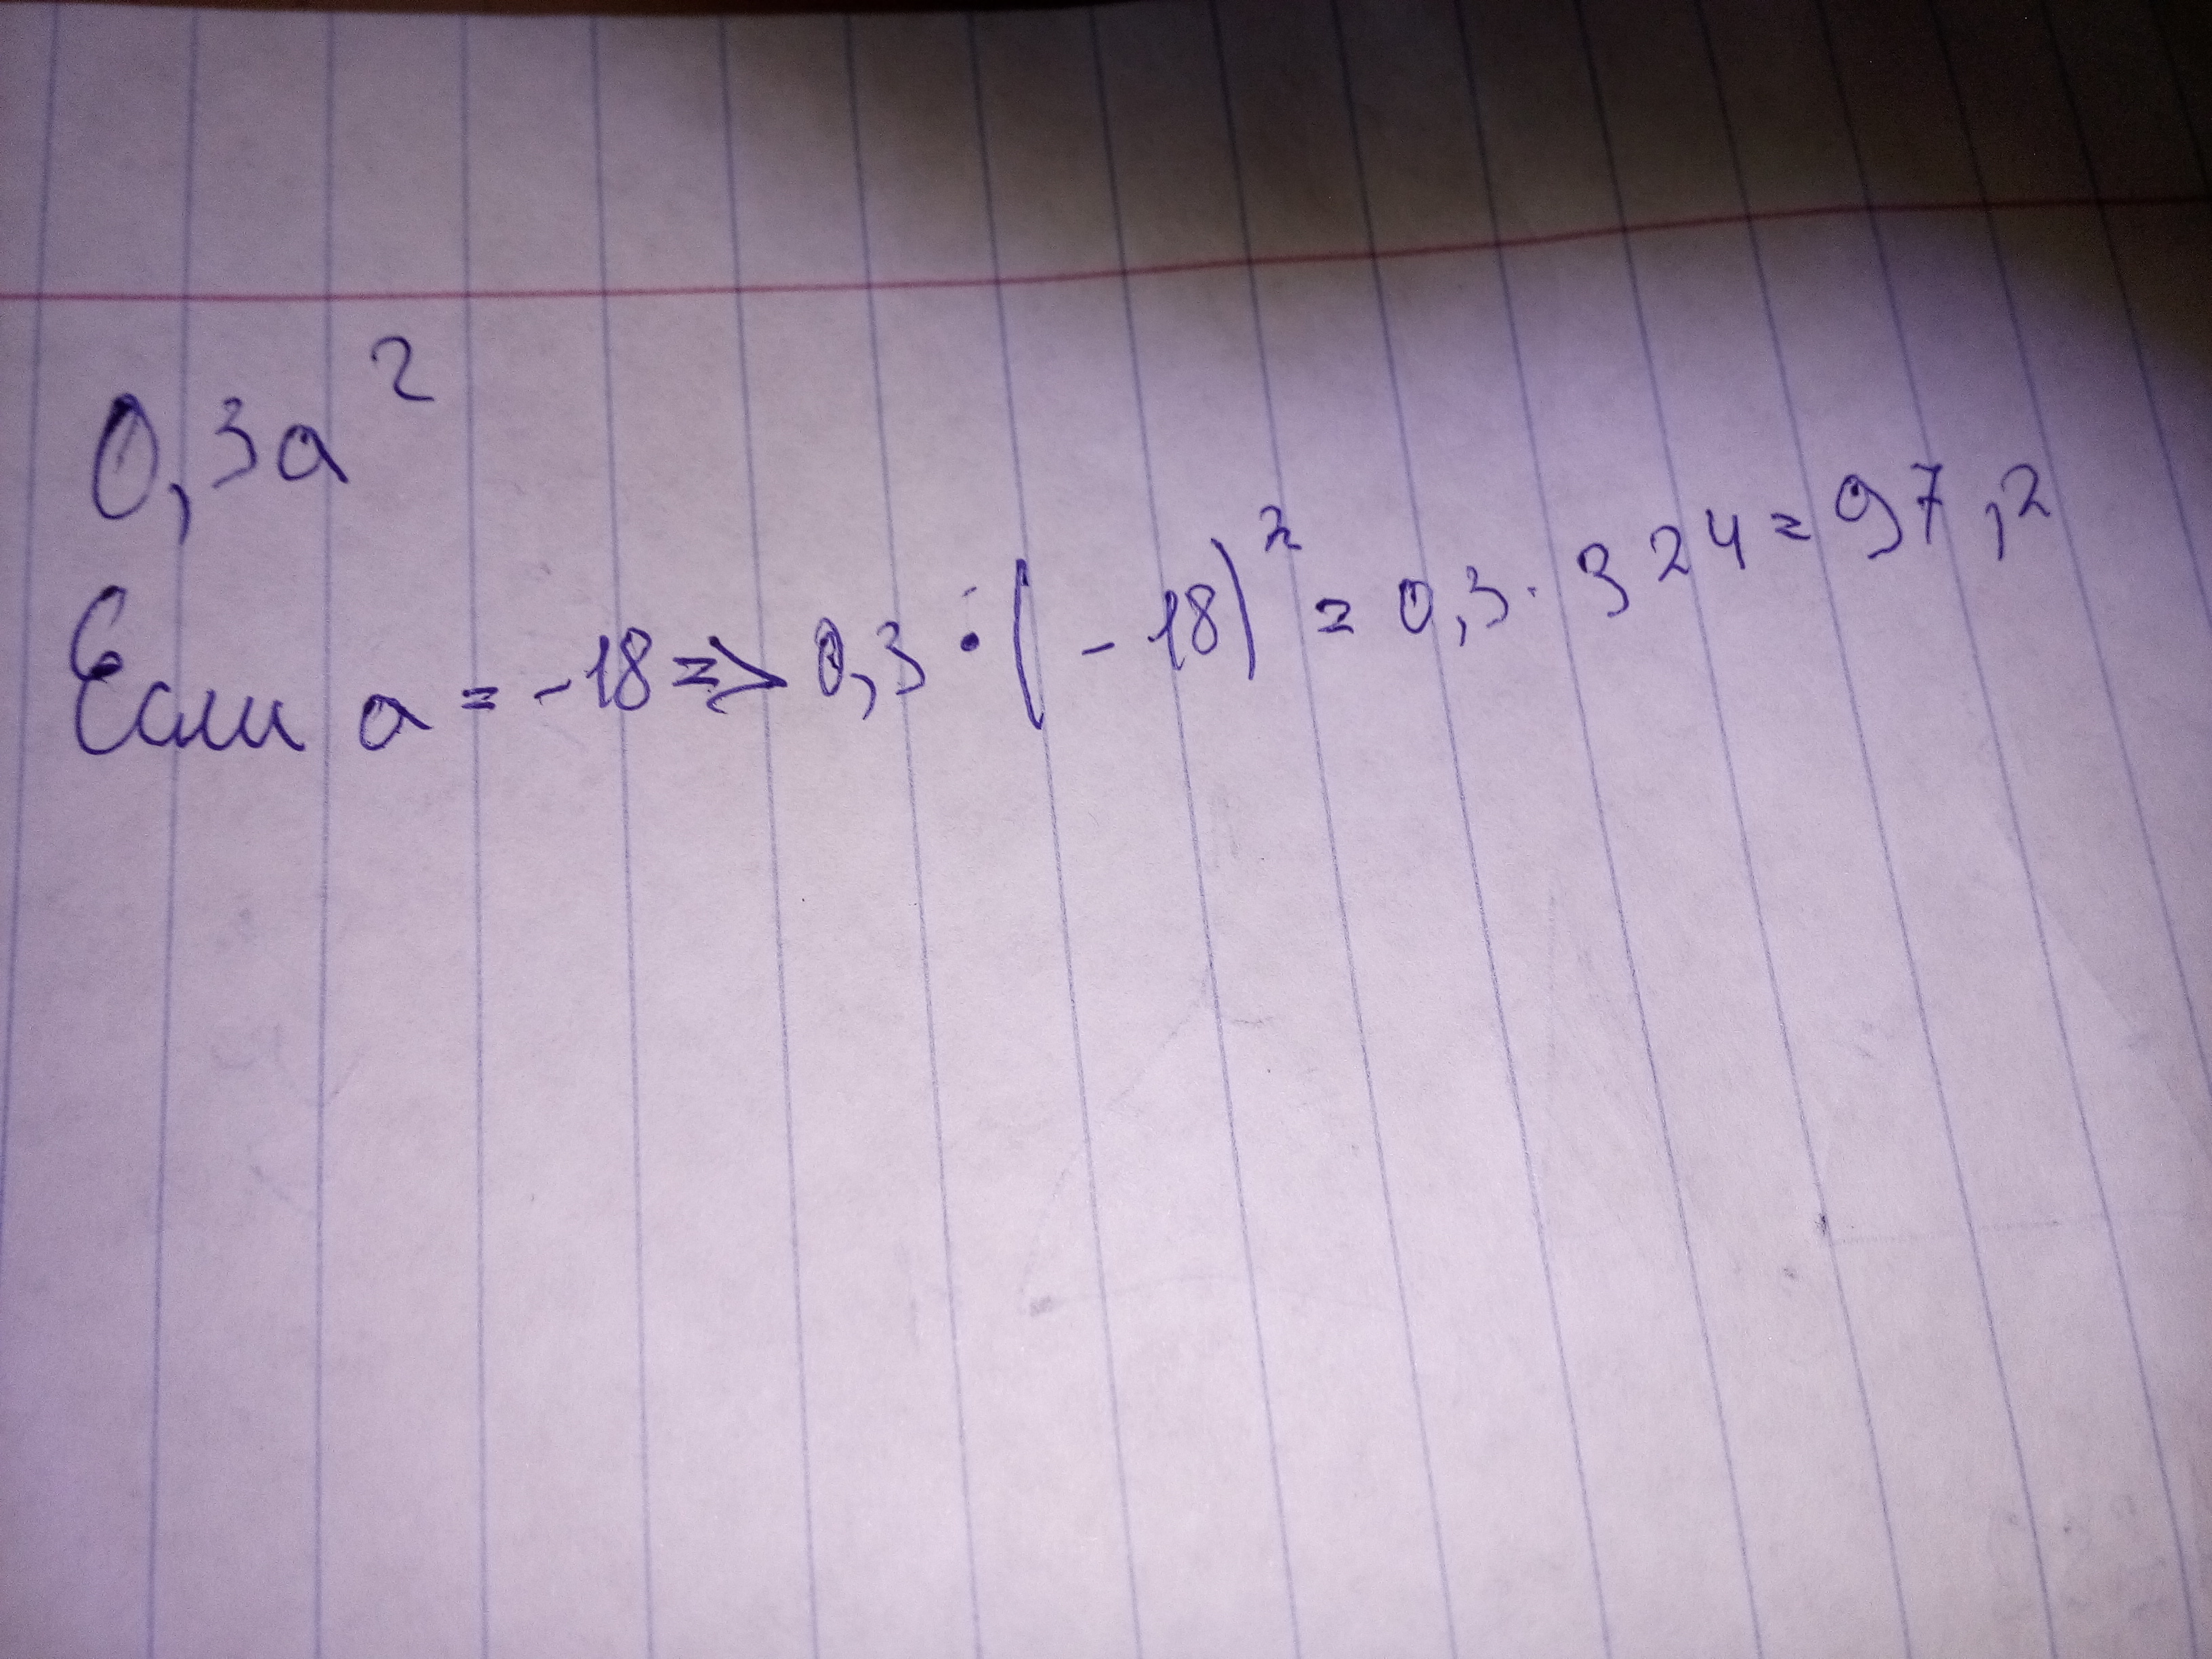 0,3a²
Если a = -18 => 0,3 · (-18)² = 0,3 · 324 = 97,2